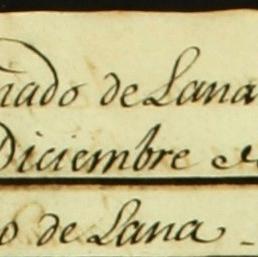 nado de Lana
Diciembre de
o de Lana